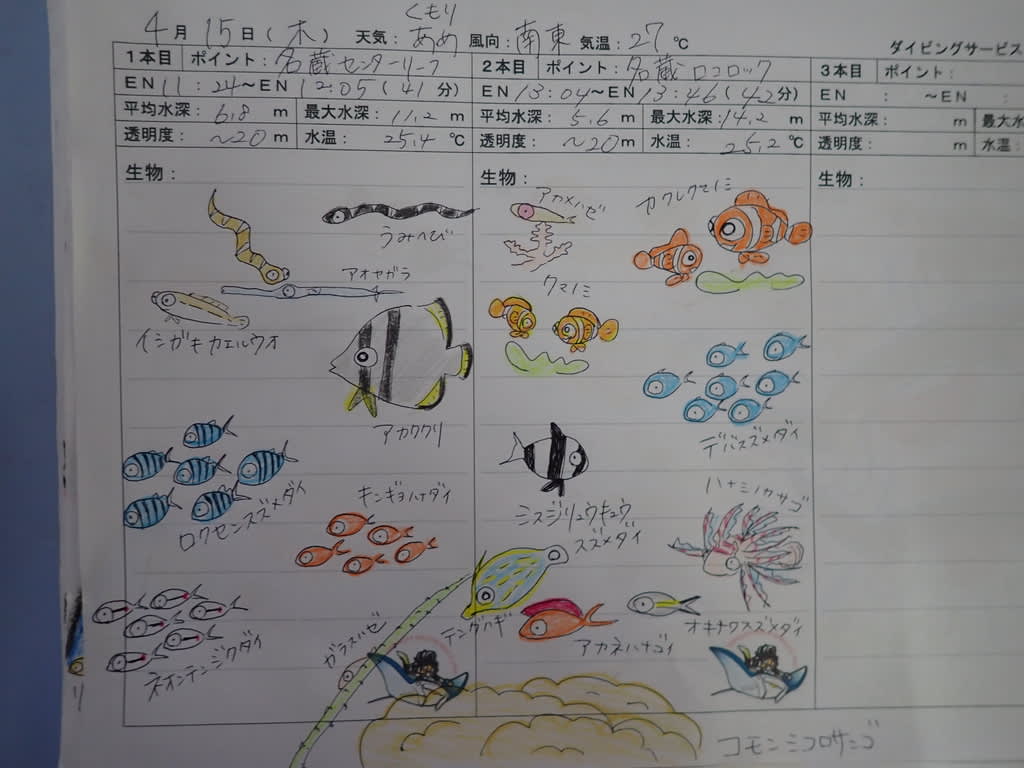 くもり
4月15日(木) 天気:あめ 風向:南東 気温:27℃
ダイビングサービス
1本目 ポイント:名蔵センターリーフ 2本目 ポイント:名蔵ロコロック 3本目 ポイント:
EN 11:24～EN 12:05(41分) EN 13:04～EN 13:46(42分) EN : ～EN :
平均水深:6.8m 最大水深:11.2m 平均水深:5.6m 最大水深:14.2m 平均水深: m 最大水
透明度:～20m 水温:25.4℃ 透明度:～20m 水温:25.2℃ 透明度: m 水温:
生物: 生物: 生物:
アカメハゼ
カクレクマノミ
うみへび
アオヤガラ
クマノミ
イシガキカエルウオ
アカククリ
デバスズメダイ
ロクセンスズメダイ
キンギョハナダイ
ハナミノカサゴ
ミスジリュウキュウ
スズメダイ
ネオンテンジクダイ
ガラスハゼ
テングハギ
アカネハナゴイ
オキナワスズメダイ
コモンシコロサンゴ